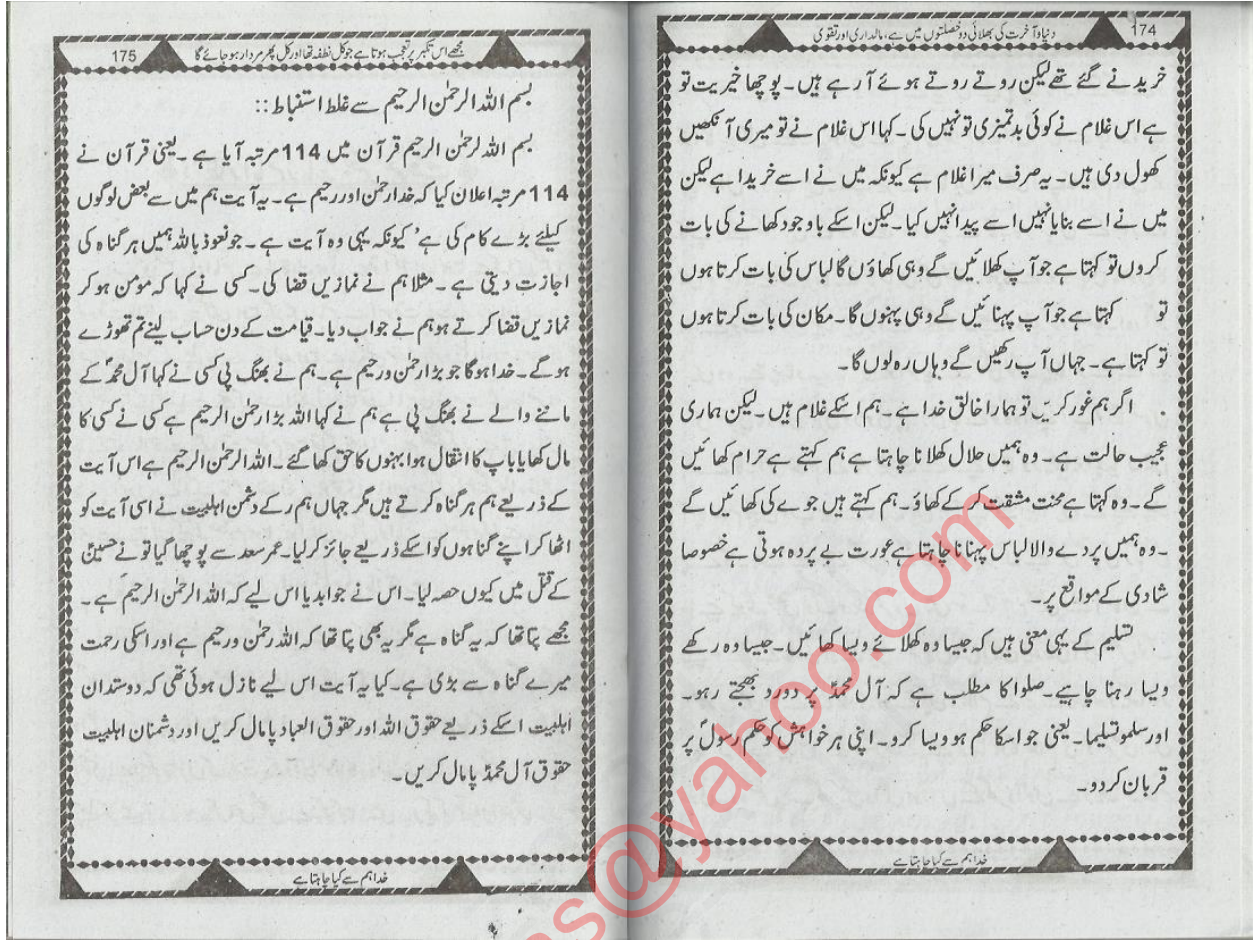 174
دنیا و آخرت کی بھلائی دو خصلتوں میں ہے، مالداری اور تقوی
خریدنے گئے تھے لیکن روتے روتے ہوئے آ رہے ہیں۔ پوچھا خیریت تو
ہے اس غلام نے کوئی بدتمیزی تو نہیں کی۔ کہا اس غلام نے تو میری آنکھیں
کھول دی ہیں۔ یہ صرف میرا غلام ہے کیونکہ میں نے اسے خریدا ہے لیکن
میں نے اسے بنایا نہیں اسے پیدا نہیں کیا۔ لیکن اسکے باوجود کھانے کی بات
کروں تو کہتا ہے جو آپ کھلائیں گے وہی کھاؤں گا لباس کی بات کرتا ہوں
تو کہتا ہے جو آپ پہنائیں گے وہی پہنوں گا۔ مکان کی بات کرتا ہوں
تو کہتا ہے۔ جہاں آپ رکھیں گے وہاں رہ لوں گا۔
اگر ہم غور کریں تو ہمارا خالق خدا ہے۔ ہم اسکے غلام ہیں۔ لیکن ہماری
عجیب حالت ہے۔ وہ ہمیں حلال کھلانا چاہتا ہے ہم کہتے ہے حرام کھائیں
گے۔ وہ کہتا ہے محنت مشقت کر کے کھاؤ۔ ہم کہتے ہیں جوے کی کھائیں گے
۔ وہ ہمیں پردے والا لباس پہنانا چاہتا ہے عورت بے پردہ ہوتی ہے خصوصا
شادی کے مواقع پر۔
تسلیم کے یہی معنی ہیں کہ جیسا وہ کھلائے ویسا کھائیں۔ جیسا وہ رکھے
ویسا رہنا چاہیے۔ صلوا کا مطلب ہے کہ آل محمدؐ پر دورد بھیجتے رہو۔
اور سلمو تسلیما۔ یعنی جو اسکا حکم ہو ویسا کرو۔ اپنی ہر خواہش کو حکم رسولؐ پر
قربان کر دو۔
خدا ہم سے کیا چاہتا ہے
175
مجھے اس تکبر پر تعجب ہوتا ہے جو کل نطفہ تھا اور کل پھر مردار ہو جائے گا
بسم اللہ الرحمٰن الرحیم سے غلط استنباط::
بسم اللہ لرحمٰن الرحیم قرآن میں 114 مرتبہ آیا ہے۔ یعنی قرآن نے
114 مرتبہ اعلان کیا کہ خدا رحمٰن اور رحیم ہے۔ یہ آیت ہم میں سے بعض لوگوں
کیلئے بڑے کام کی ہے' کیونکہ یہی وہ آیت ہے۔ جو نعوذ باللہ ہمیں ہر گناہ کی
اجازت دیتی ہے۔ مثلا ہم نے نمازیں قضا کی۔ کسی نے کہا کہ مومن ہو کر
نمازیں قضا کرتے ہو ہم نے جواب دیا۔ قیامت کے دن حساب لینے تم تھوڑے
ہو گے۔ خدا ہو گا جو بڑا رحمٰن و رحیم ہے۔ ہم نے بھنگ پی کسی نے کہا آل محمدؐ کے
ماننے والے نے بھنگ پی ہے ہم نے کہا اللہ بڑا رحمٰن الرحیم ہے کسی نے کسی کا
مال کھایا باپ کا انتقال ہوا بہنوں کا حق کھا گئے۔ اللہ الرحمٰن الرحیم ہے اس آیت
کے ذریعے ہم ہر گناہ کرتے ہیں مگر جہاں ہم رکے دشمن اہلبیت نے اسی آیت کو
اٹھا کر اپنے گناہوں کو اسکے ذریعے جائز کر لیا۔ عمر سعد سے پوچھا گیا تو نے حسینؑ
کے قتل میں کیوں حصہ لیا۔ اس نے جواب دیا اس لیے کہ اللہ الرحمٰن الرحیم ہے۔
مجھے پتا تھا کہ یہ گناہ ہے مگر یہ بھی پتا تھا کہ اللہ رحمٰن و رحیم ہے اور اسکی رحمت
میرے گناہ سے بڑی ہے۔ کیا یہ آیت اس لیے نازل ہوئی تھی کہ دوستدان
اہلبیت اسکے ذریعے حقوق اللہ اور حقوق العباد پامال کریں اور دشمنان اہلبیت
حقوق آل محمدؐ پامال کریں۔
خدا ہم سے کیا چاہتا ہے
s@yahoo.com